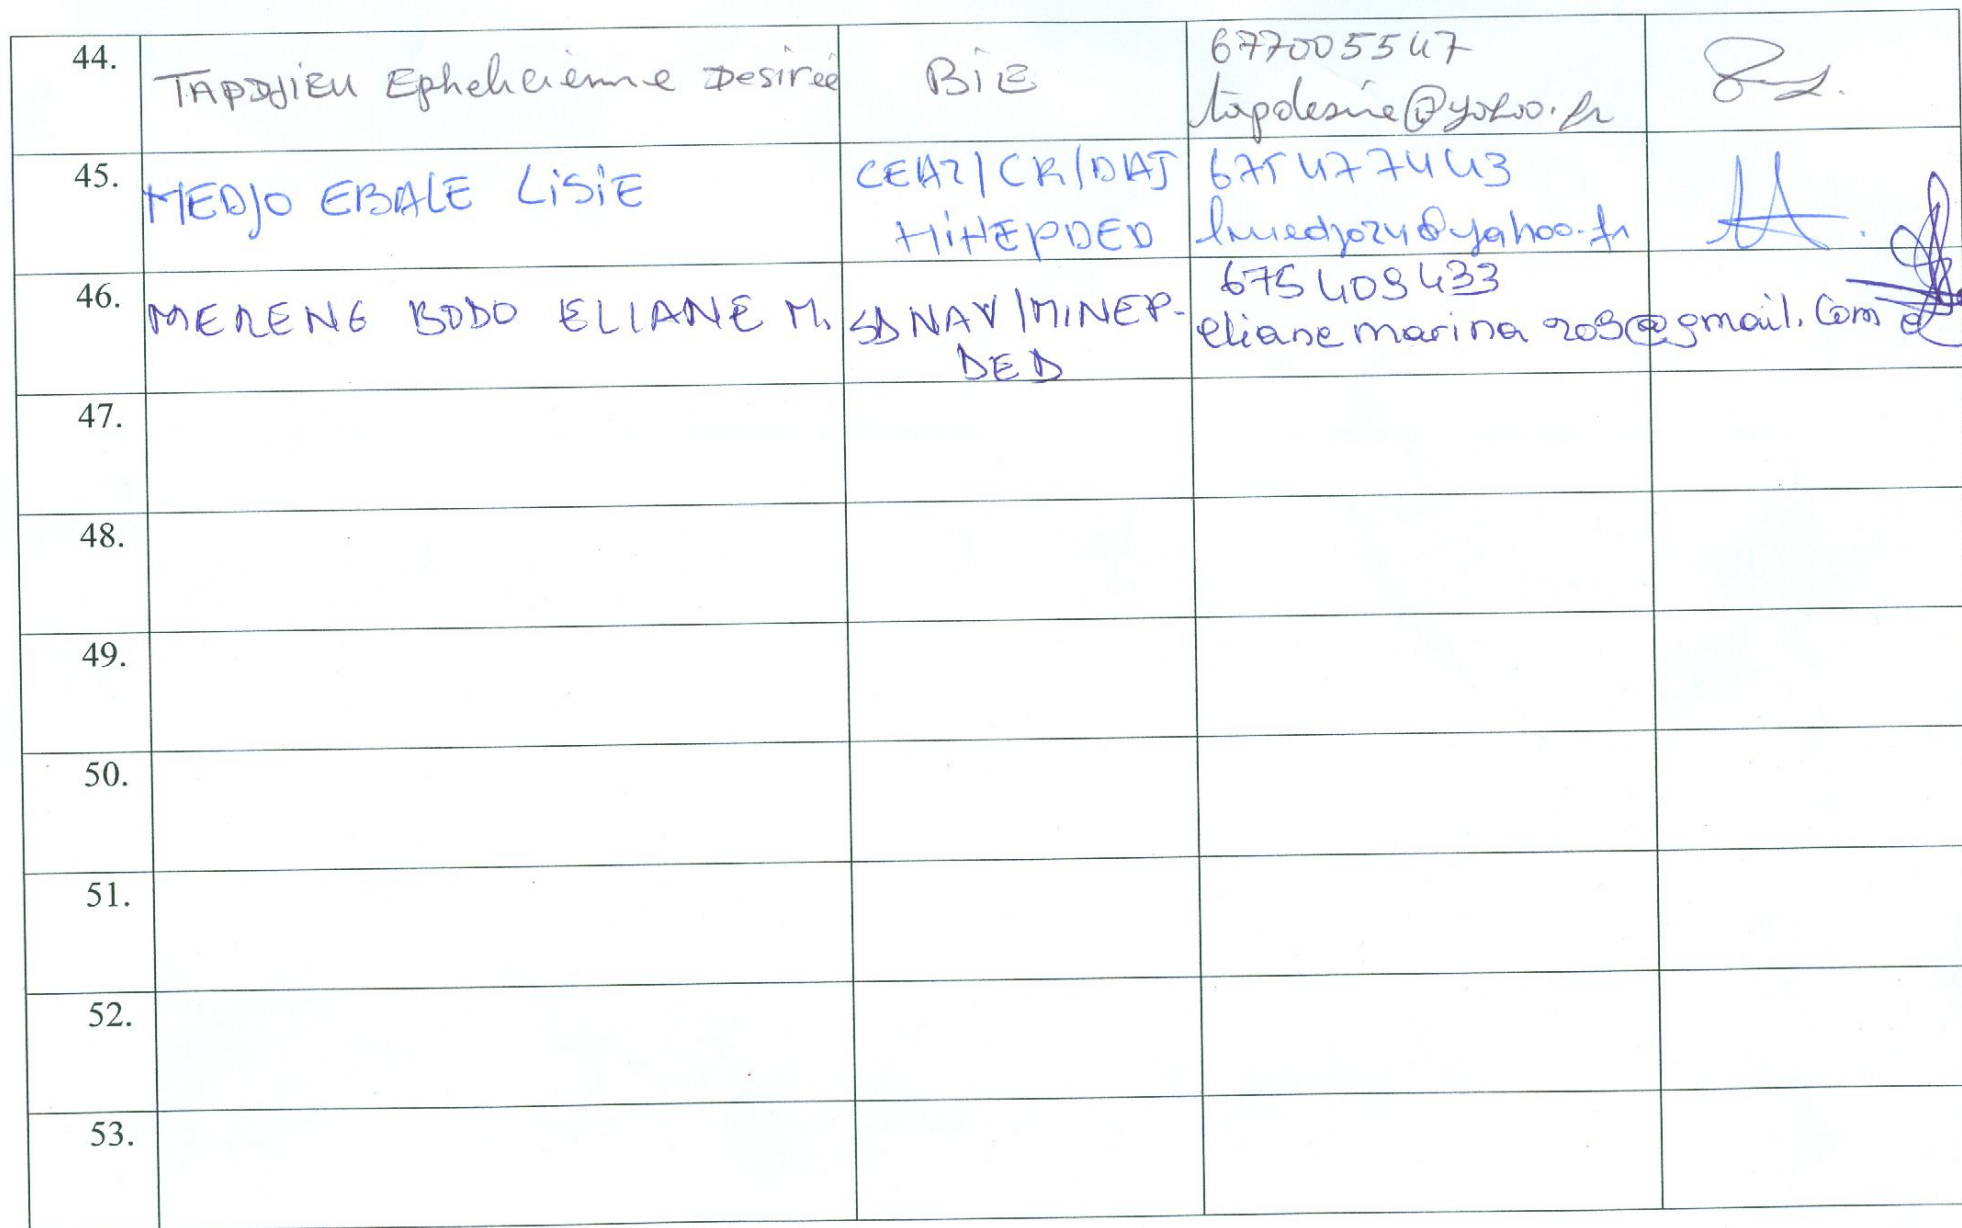 44. TAPDJIEU Ephehcienne Desirée BIE 677005547
tapdesire@yahoo.fr
45. MEDJO EBALE LISIE CEA2/CR/DAJ 675477443
MINEPDED lmedjo24@yahoo.fr
46. MERENG BODO ELIANE M. SDNAV/MINEP- 675409433
DED elianemarina209@gmail.com
47.
48.
49.
50.
51.
52.
53.